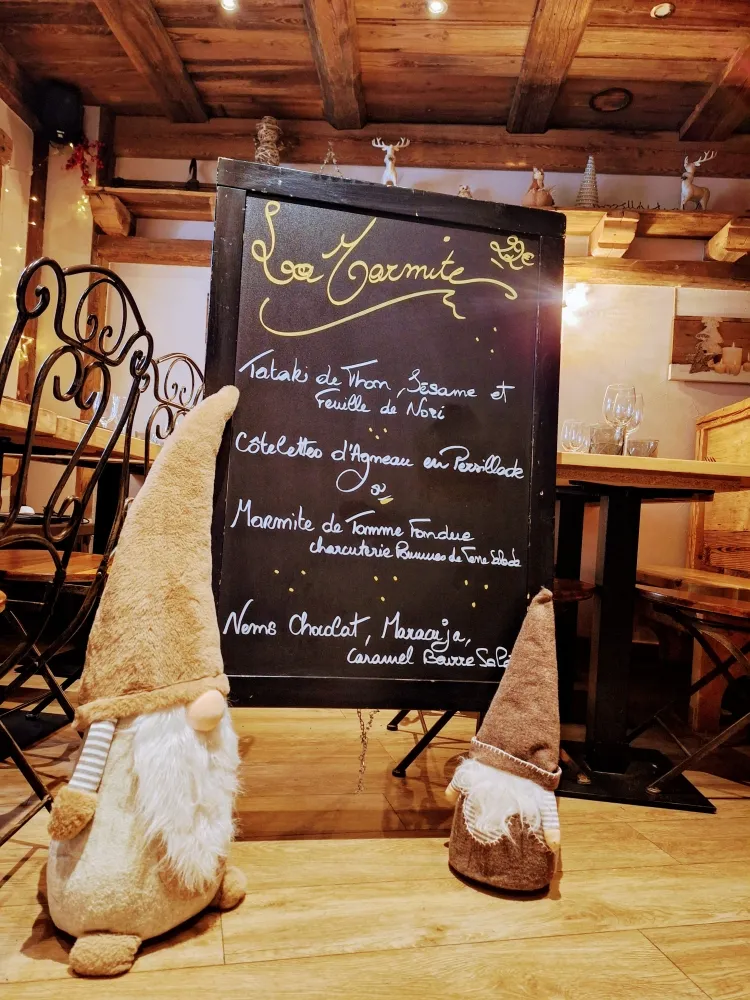 La Marmite
Tataki de Thon, Sésame et
Feuille de Nori
Côtelettes d'Agneau en Persillade
ou
Marmite de Tomme Fondue
charcuterie Pommes de Terre Salade
Nems Chocolat, Maracuja,
Caramel Beurre Salé